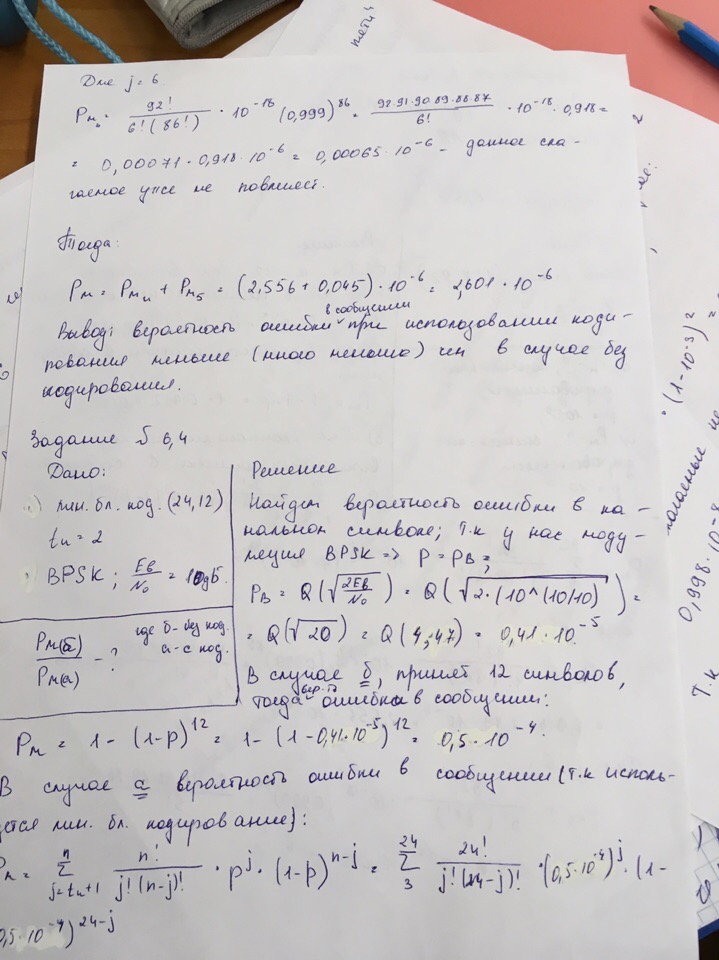 Для j = 6
Pм₆ = 92! / 6!(86!) · 10^-18 (0,999)^86 = 92·91·90·89·88·87 / 6! · 10^-18 · 0,918 =
= 0,00071 · 0,918 · 10^-6 = 0,00065 · 10^-6 - данное сла-
гаемое уже не повлияет.
Тогда:
Pм = Pм₄ + Pм₅ = (2,556 + 0,045) · 10^-6 = 2,601 · 10^-6
в сообщении
Вывод: вероятность ошибки при использовании коди-
рования меньше (много меньше) чем в случае без
кодирования.
Задание 6,4
Дано:
1) лин. бл. код. (24,12)
tи = 2
BPSK; Eв/N₀ = 10дБ.
Pм(б)/Pм(а) - ?
где б - без код.
а - с код.
Решение
Найдем вероятность ошибки в ка-
нальном символе; т.к у нас моду-
ляция BPSK => P = Pв;
Pв = Q(√(2Eв/N₀)) = Q(√(2·(10^(10/10)))) =
= Q(√20) = Q(4,47) = 0,41·10^-5
В случае б, принят 12 символов,
тогда вер-ть ошибки в сообщении:
Pм = 1 - (1-p)^12 = 1 - (1-0,41·10^-5)^12 = 0,5·10^-4.
В случае а вероятность ошибки в сообщении (т.к исполь-
ется лин. бл. кодирование):
= Σ n j=tи+1 n! / j!(n-j)! · p^j · (1-p)^n-j = Σ 24 3 24! / j!(24-j)! · (0,5·10^-4)^j · (1-
0,5·10^-4)^24-j
(1-10^-3)²
0,998·10^-4
Т.к